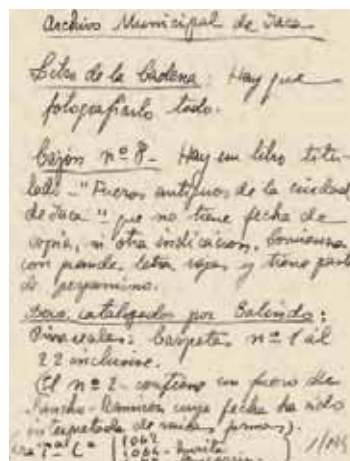 Archivo Municipal de Jaca
Libro de la Cadena: Hay que
fotografiarlo todo.
Cajón nº 8 - Hay un libro titu-
lado - "Fueros antiguos de la ciudad
de Jaca" que no tiene fecha de
copia, ni otra indicación. Comienza
con grandes letras rojas y tiene pastas
de pergamino.
Docs. catalogados por Galindo:
Pins reales: Carpetas nº 1 al
22 inclusive.
El nº 2 - contiene un fuero de
Sancho-Ramírez cuya fecha ha sido
interpretada de varias formas).
1062
1064 - Zurita